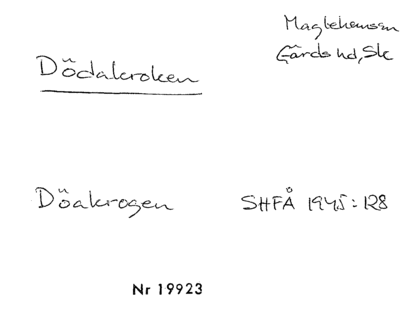 Maglehems sn
Gärds hd, Sk
Dödakroken
Döakrogen SHFÅ 1945:128
Nr 19923